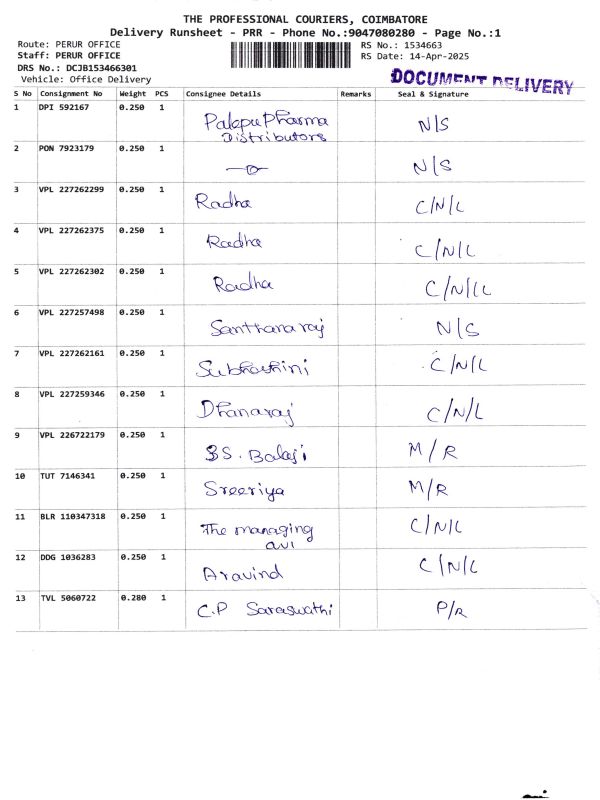 THE PROFESSIONAL COURIERS, COIMBATORE
Delivery Runsheet - PRR - Phone No.:9047080280 - Page No.:1
Route: PERUR OFFICE RS No.: 1534663
Staff: PERUR OFFICE RS Date: 14-Apr-2025
DRS No.: DCJB153466301
Vehicle: Office Delivery DOCUMENT DELIVERY
S No Consignment No Weight PCS Consignee Details Remarks Seal & Signature
1 DPI 592167 0.250 1 Palepu Pharma Distributors N/S
2 PON 7923179 0.250 1 N/S
3 VPL 227262299 0.250 1 Radha C/N/L
4 VPL 227262375 0.250 1 Radha C/N/L
5 VPL 227262302 0.250 1 Radha C/N/L
6 VPL 227257498 0.250 1 Santhanaraj N/S
7 VPL 227262161 0.250 1 Subhashini C/N/L
8 VPL 227259346 0.250 1 Dhanaraj C/N/L
9 VPL 226722179 0.250 1 SS. Balaji M/R
10 TUT 7146341 0.250 1 Sreeriya M/R
11 BLR 110347318 0.250 1 The managing C/N/L
12 DDG 1036283 0.250 1 Aravind C/N/L
13 TVL 5060722 0.280 1 C.P Saraswathi P/R